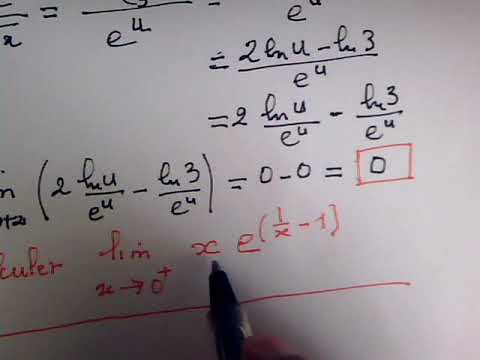 e^u
= (2 ln u - ln 3)/e^u
= 2 ln u/e^u - ln 3/e^u
(2 ln u/e^u - ln 3/e^u) = 0 - 0 = 0
lim x→0⁺ x e^(1/x - 1)